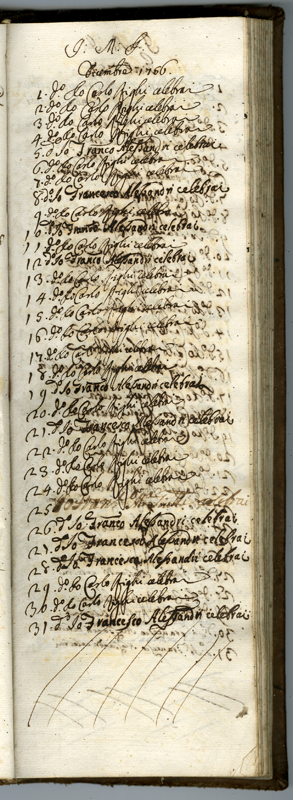 J. M. J.
Decembre 1766.
1. dº Io Carlo Righi celebrai
2. dº Io Carlo Righi celebrai
3. dº Io Carlo Righi celebrai
4. dº Io Carlo Righi celebrai
5. dº Io Franco Alessandri celebrai
6. dº Io Carlo Righi celebrai
7. dº Io Carlo Righi celebrai
8. dº Io Francesco Alessandri celebrai
9. dº Io Carlo Righi celebrai
10. dº Io Franco Alessandri celebrai
11. dº Io Carlo Righi celebrai
12. dº Io Franco Alessandri celebrai
13. dº Io Carlo Righi celebrai
14. dº Io Carlo Righi celebrai
15. dº Io Carlo Righi celebrai
16. dº Io Carlo Righi celebrai
17. dº Io Carlo Righi celebrai
18. dº Io Carlo Righi celebrai
19. dº Io Franco Alessandri celebrai
20. dº Io Carlo Righi celebrai
21. dº Io Francesco Alessandri celebrai
22. dº Io Carlo Righi celebrai
23. dº Io Carlo Righi celebrai
24. dº Io Carlo Righi celebrai
25 celebrai
26. dº Io Franco Alessandri celebrai
27. dº Io Francesco Alessandri celebrai
28. dº Io Francesco Alessandri celebrai
29. dº Io Carlo Righi celebrai
30. dº Io Carlo Righi celebrai
31. dº Io Francesco Alessandri celebrai